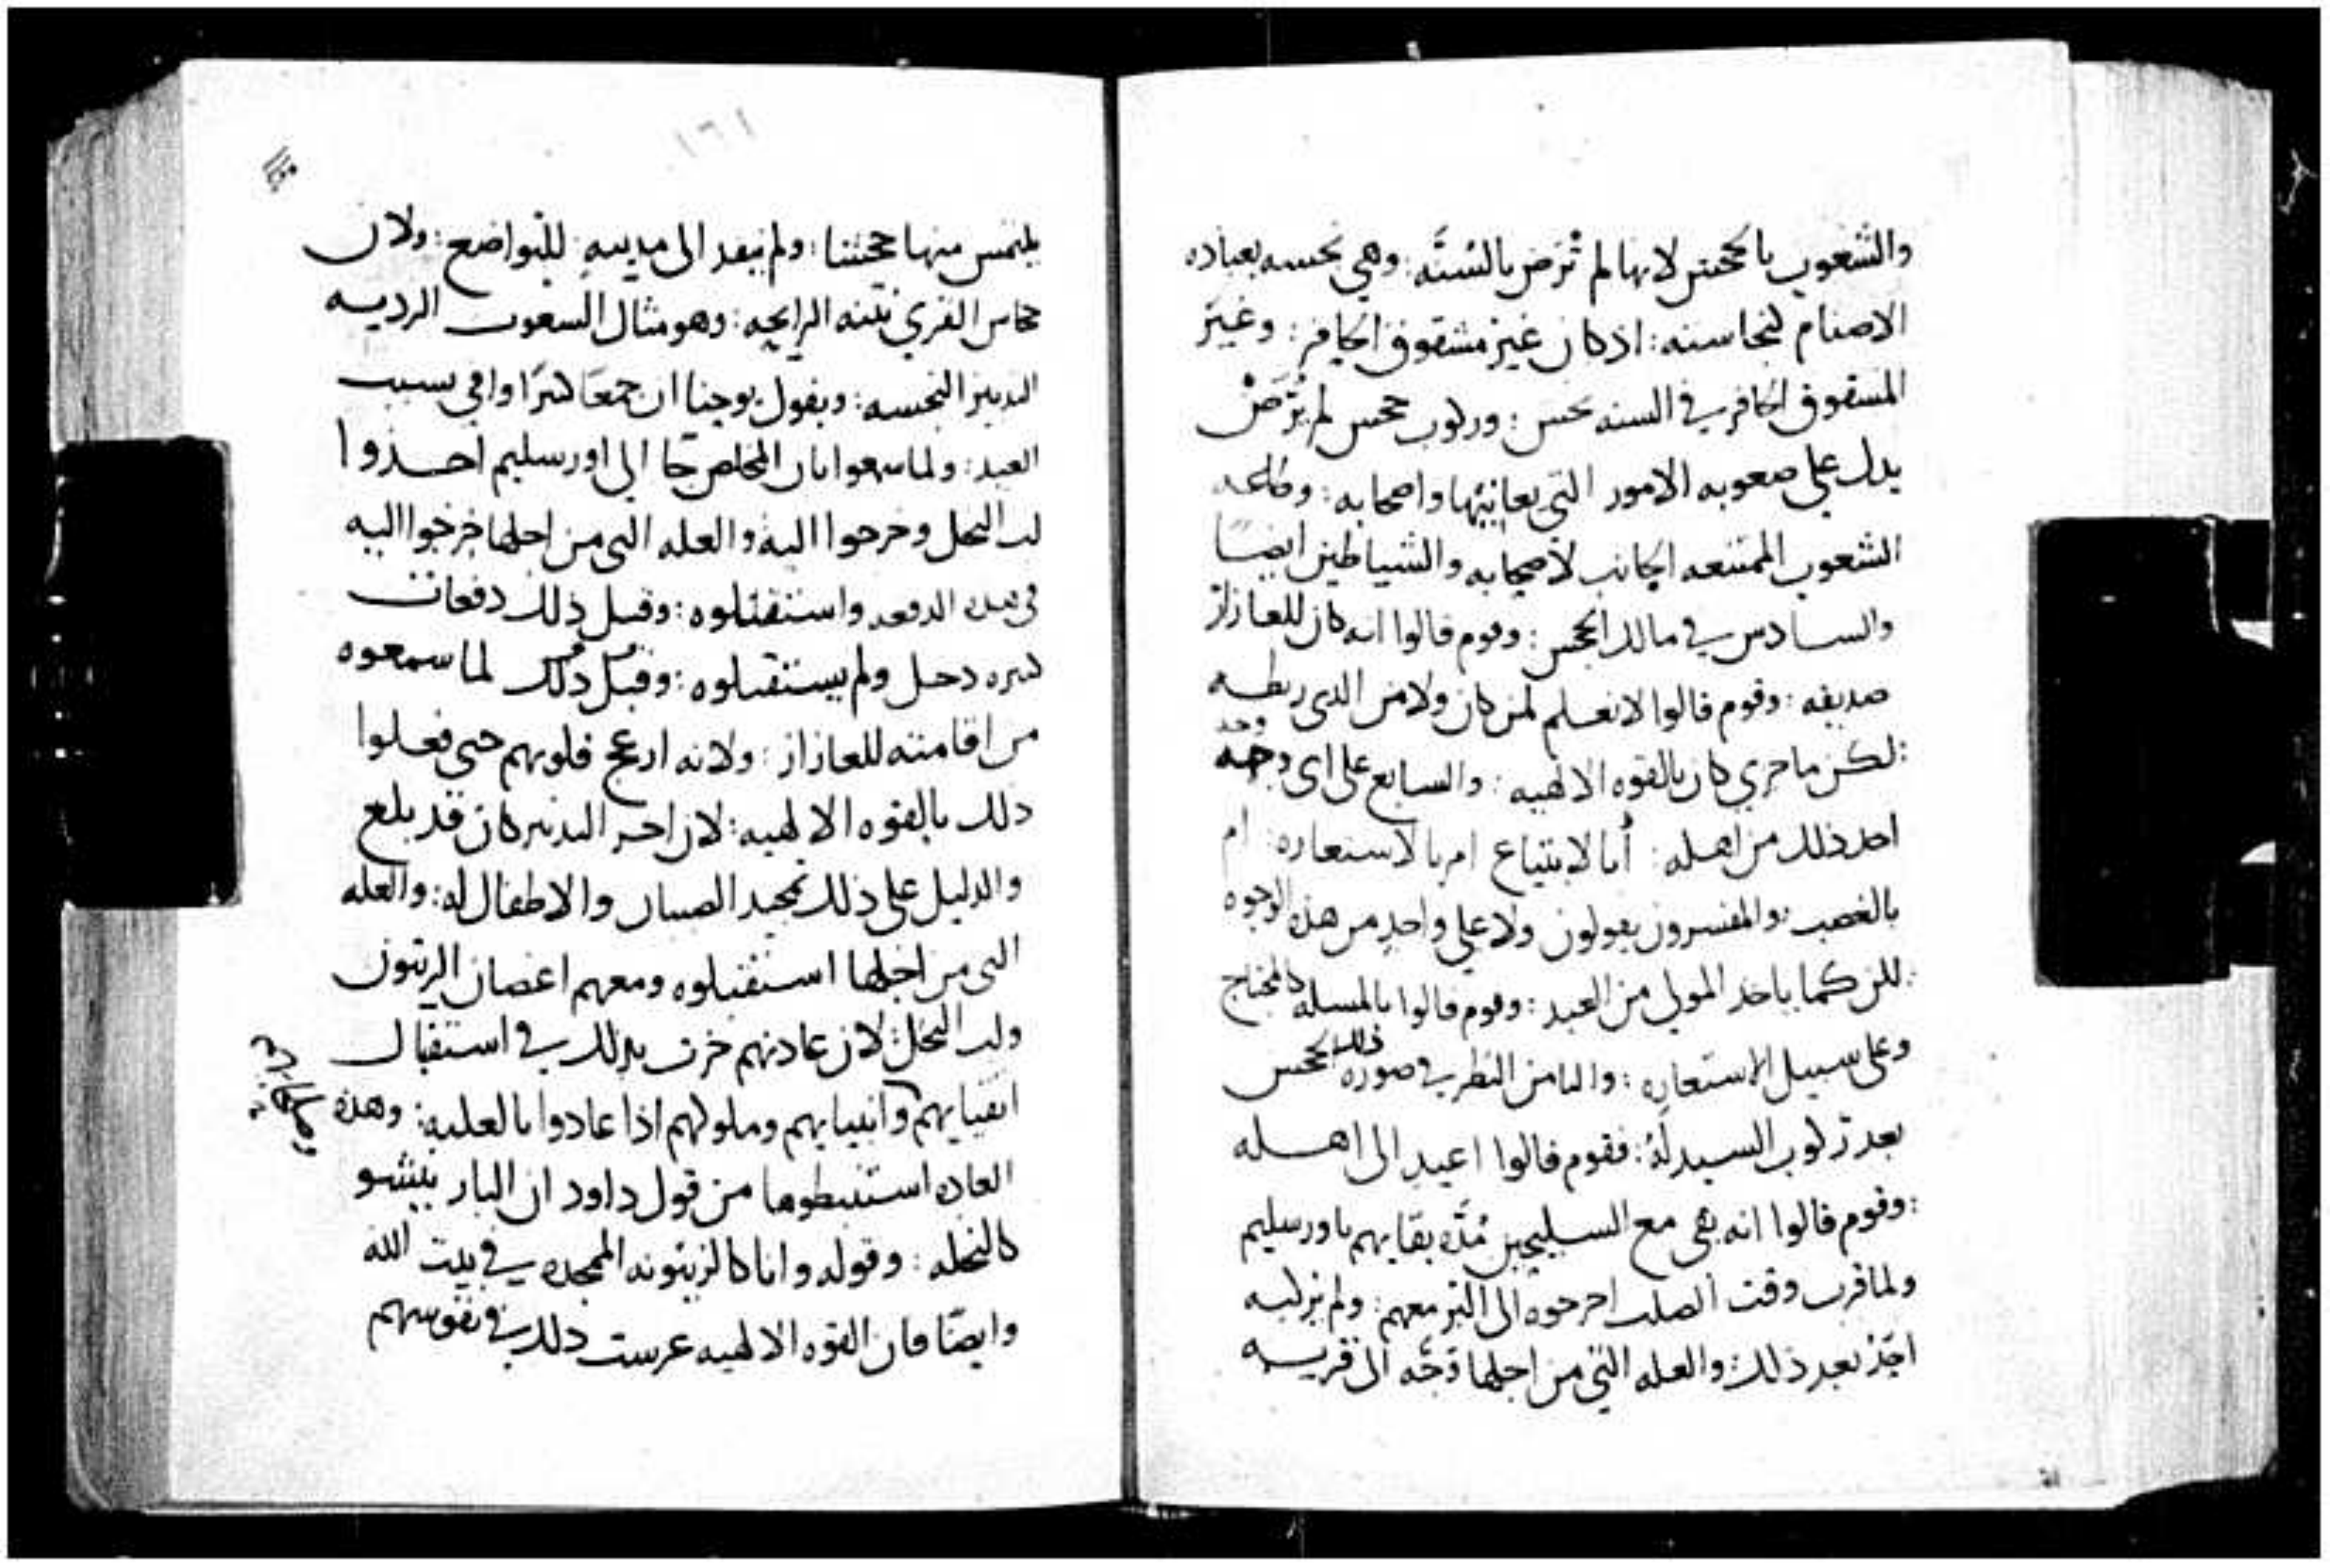 والشعوب بالجحش لانها لم تُرَض بالسُنَّه: وهي نجسه بعباده
الاصنام لنجاسته: اذ كان غير مشقوق الحافر: وغير
المشقوق الحافر في السنه نجس: وركوب جحش لم يُرَضْ
يدل على صعوبه الامور التي يعانيها واصحابه: وطاعه
الشعوب الممتنعه الجانب لاصحابه والشياطين ايضًا
والسادس في مالك الجحش: وقوم قالوا انه كان للعازار
صديقه: وقوم قالوا لا نعلم لمن كان ولا من الذي ربطه
لكن ما جري كان بالقوه الالهيه: والسابع على اى وجه
اخذ ذلك من اهله: أبالابتياع ام بالاستعاره: ام
بالغصب: والمفسرون يقولون ولا على واحدٍ من هذه الوجوه
لكن كما ياخذ المولي من العبد: وقوم قالوا بالمسله كالمحتاج
وعلى سبيل الاستعاره: والثامن النظر في صوره ذلك الجحش
بعد ركوب السيد لَهُ: فقوم قالوا اعيد الى اهله
وقوم قالوا انه بقى مع السليحين مُدَّه بقايهم باورسليم
ولما قرب وقت الصلب اخرجوه الى البر معهم: ولم يركبه
احَدٌ بعد ذلك: والعله التي من اجلها وَجَّه الى قريه
١٦١
يلتمس منها جحشا: ولم ينفد الى مدينهٍ للتواضع: ولان
جحاش القري نتنه الرايحه: وهو مثال الشعوب الرديه
التدبير النجسه: ويقول يوحنا ان جمعًا كثيرًا وافي بسبب
العيد: ولما سمعوا بان المخلص جا الي اورسليم اخذوا
لب النخل وخرجوا اليه والعله التي من اجلها خرجوا اليه
في هذه الدفعه واستقبلوه: وقبل ذلك دفعات
كثيره دخل ولم يستقبلوه: وقبل ذلك لما سمعوه
من اقامته للعازار: ولانه ازعج قلوبهم حتى فعلوا
ذلك بالقوه الالهيه: لان اخر التدبير كان قد بلغ
والدليل على ذلك تمجيد الصبيان والاطفال له: والعله
التي من اجلها استقبلوه ومعهم اغصان الزيتون
ولب النخل: لان عادتهم جرت بذلك في استقبال
اتقيايهم وانبيايهم وملوكهم اذا عادوا بالغلبه: وهذه
العاده استنبطوها من قول داود ان البار ينشو
كالنخله: وقوله وانا كالزيتونه الممجده في بيت الله
وايضًا فان القوه الالهيه غرست ذلك في نفوسهم